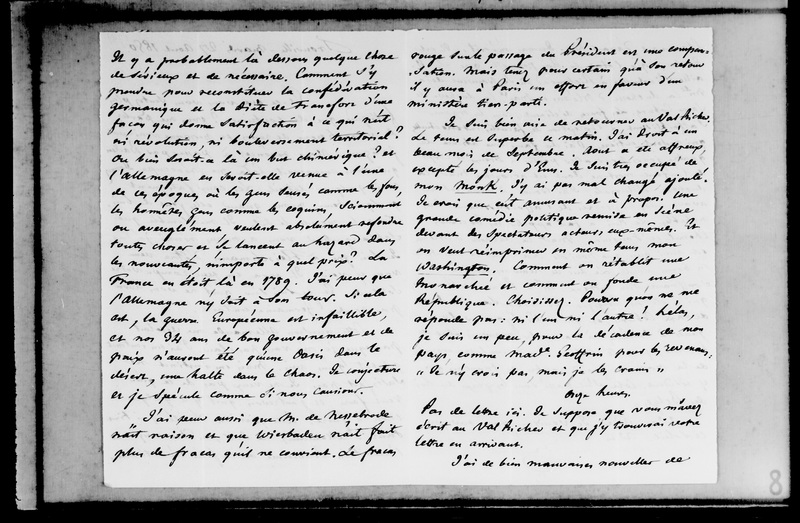 Il y a probablement là dessous quelque chose
de sérieux et de nécessaire. Comment s'y
prendre pour reconstituer la confédération
germanique et la Diète de Francfort d'une
façon qui donne satisfaction à ce qui n'est
ni révolution, ni bouleversement territorial ?
Ou bien serait-ce là un but chimérique ? et
l'Allemagne en serait-elle venue à l'une
de ces époques où les gens sensés comme les fous,
les honnêtes gens comme les coquins, sciemment
ou aveuglément veulent absolument refondre
toutes choses et se lancent au hazard dans
les nouveautés, n'importe à quel prix ? La
France en était là en 1789. J'ai peur que
l'Allemagne n'y soit à son tour. Si cela
est, la guerre Européenne est infaillible,
et nos 34 ans de bon gouvernement et de
paix n'auront été qu'une Oasis dans le
désert, une halte dans le chaos. Je conjecture
et je spécule comme si nous causions.
J'ai peur aussi que M. de Nesselrode
n'ait raison et que Wiesbaden n'ait fait
plus de fracas qu'il ne convient. Le fracas
rouge sur le passage du Président est une compen-
sation. Mais tenez pour certain qu'à son retour
il y aura à Paris un effort en faveur d'un
ministère tiers-parti.
Je suis bien aise de retourner au Val Richer.
Le tems est superbe ce matin. J'ai droit à un
beau mois de Septembre. Aout a été affreux,
excepté les jours d'Ems. Je suis très occupé de
mon Monk. J'y ai pas mal changé, ajouté.
Je crois que c'est amusant et à propos. Une
grande comédie politique remise en scène
devant des spectateurs acteurs eux-mêmes. Et
on veut réimprimer en même tems mon
Washington. Comment on rétablit une
Monarchie et comment on fonde une
République. Choisissez. Pourvu qu'on ne me
réponde pas : ni l'un ni l'autre ! Hélas,
je suis un peu, pour la décadence de mon
pays, comme Made Geoffrin pour les revenans,
« Je n'y crois pas, mais je les crains »
Onze heures.
Pas de lettre ici. Je suppose que vous m'avez
écrit au Val Richer et que j'y trouverai votre
lettre en arrivant.
J'ai de bien mauvaises nouvelles de
8